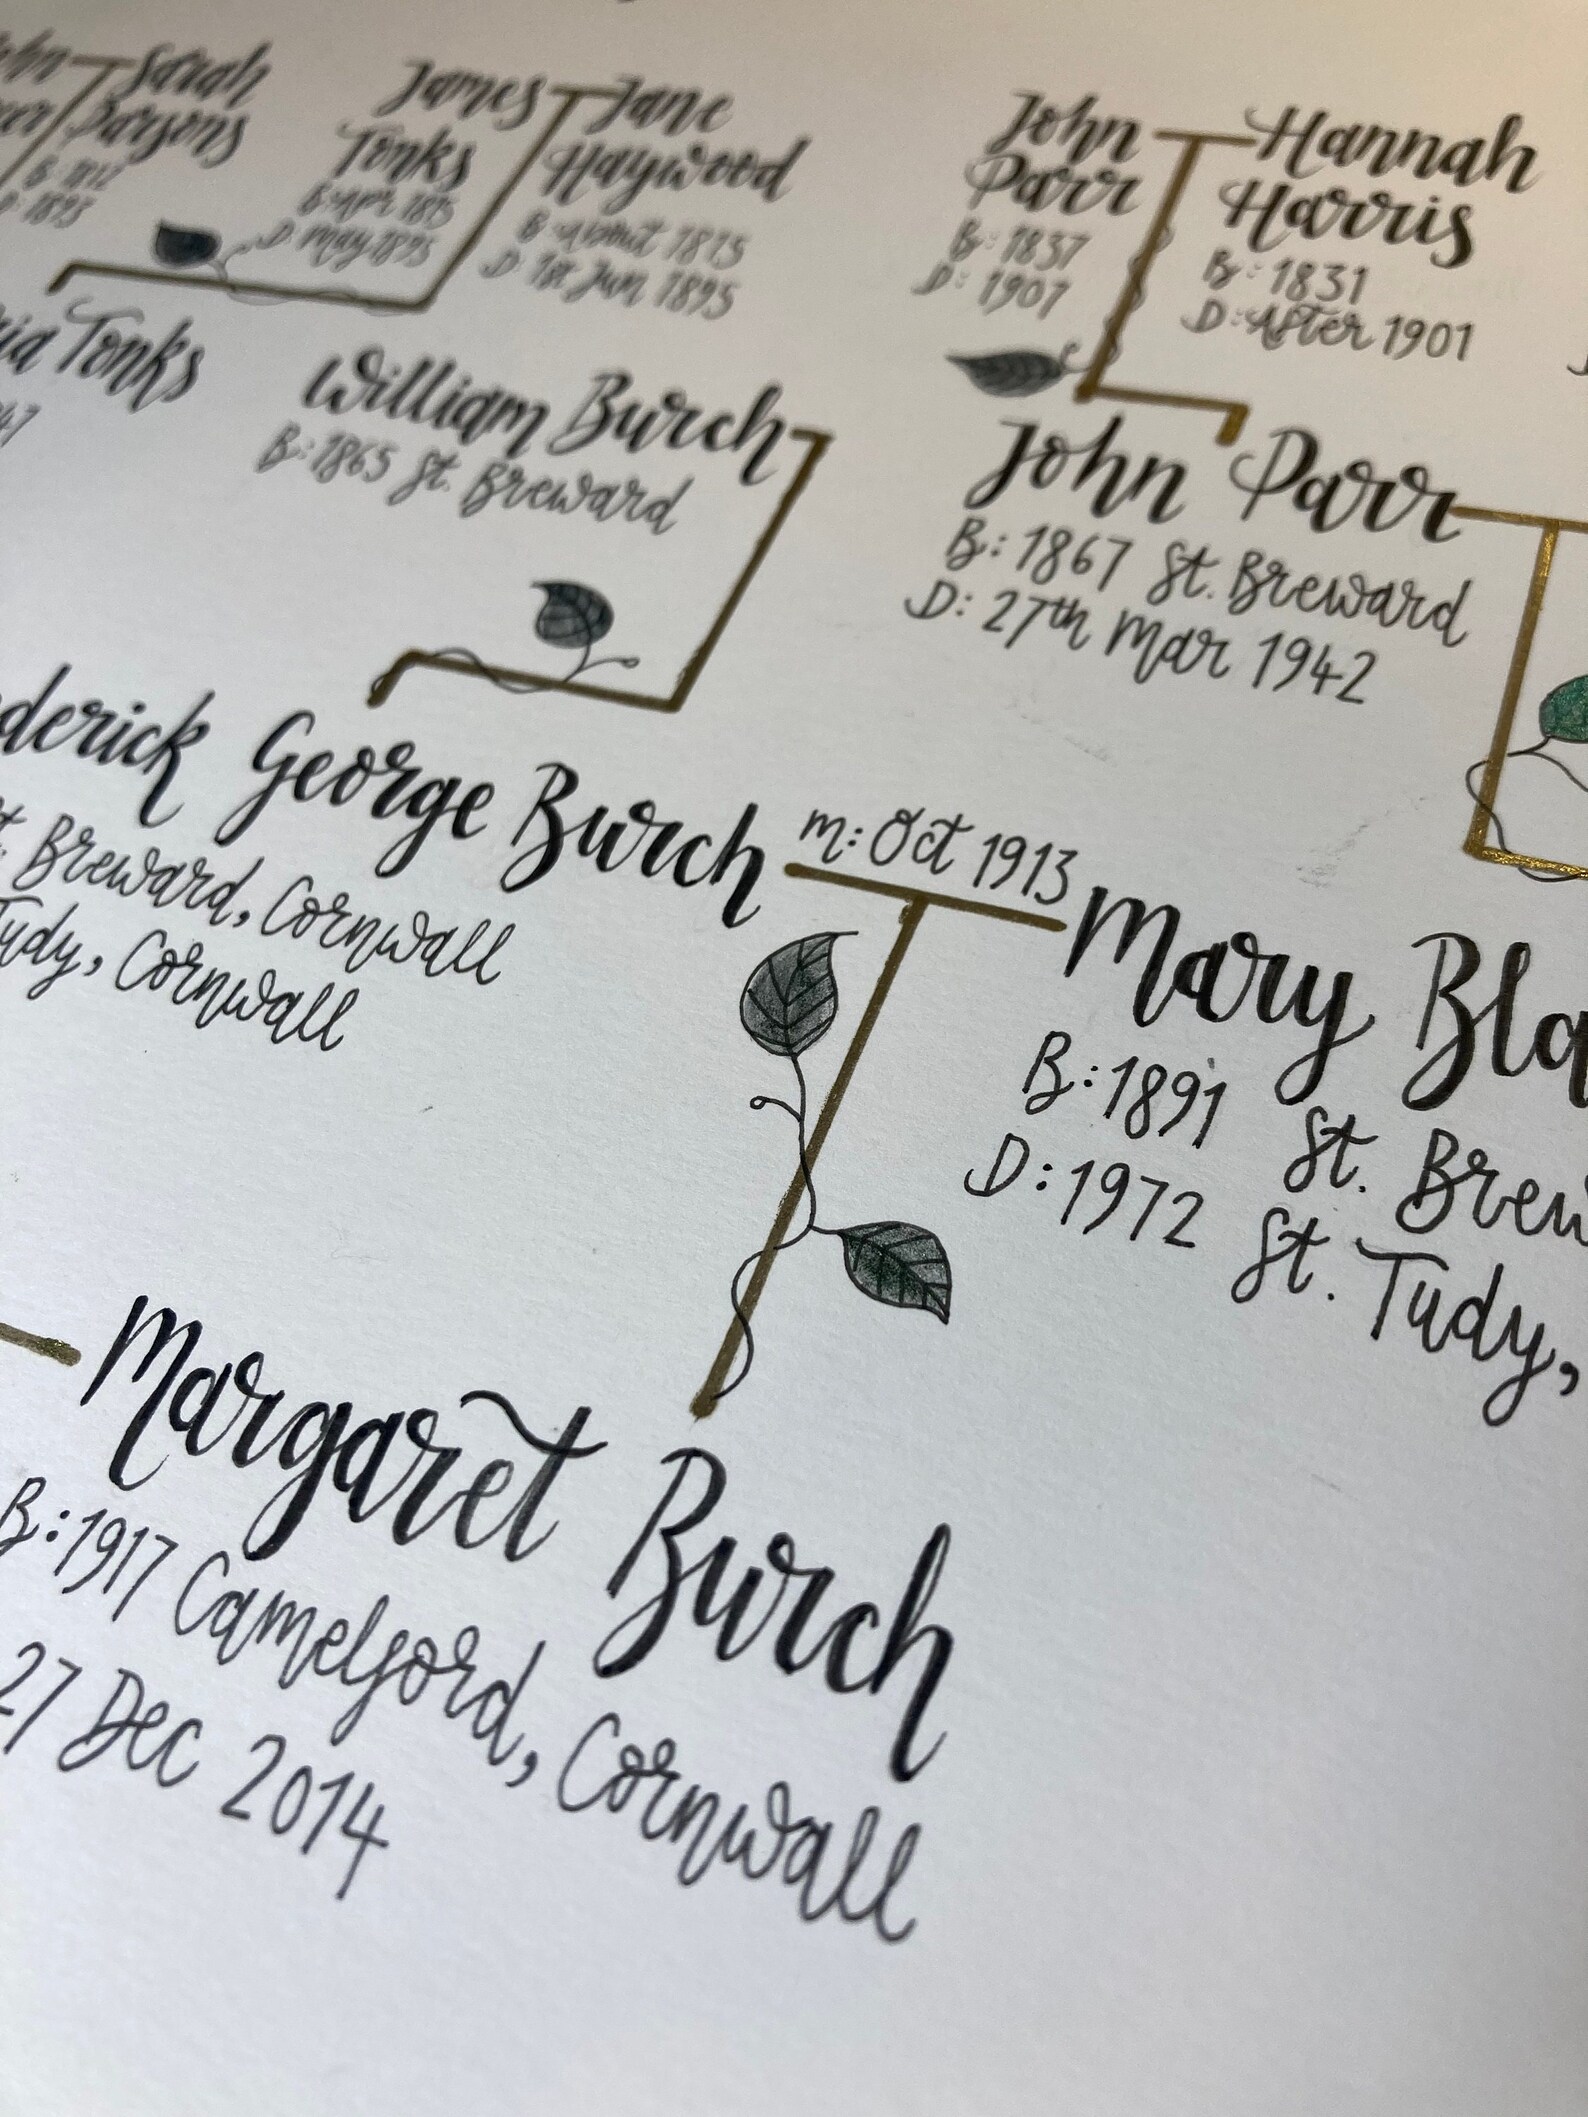 Sarah
Parsons
D: 1895
James
Tonks
D: May 1895
Jane
Haywood
B: about 1815
D: 1st Jun 1895
John
Parr
B: 1837
D: 1907
Hannah
Harris
B: 1831
D: After 1901
Tonks
William Burch
B: 1865 St. Breward
John Parr
B: 1867 St. Breward
D: 27th Mar 1942
derick George Burch
Breward, Cornwall
Tudy, Cornwall
m: Oct 1913
Mary Bla
B: 1891 St. Brew
D: 1972 St. Tudy,
Margaret Burch
B: 1917 Camelford, Cornwall
27 Dec 2014